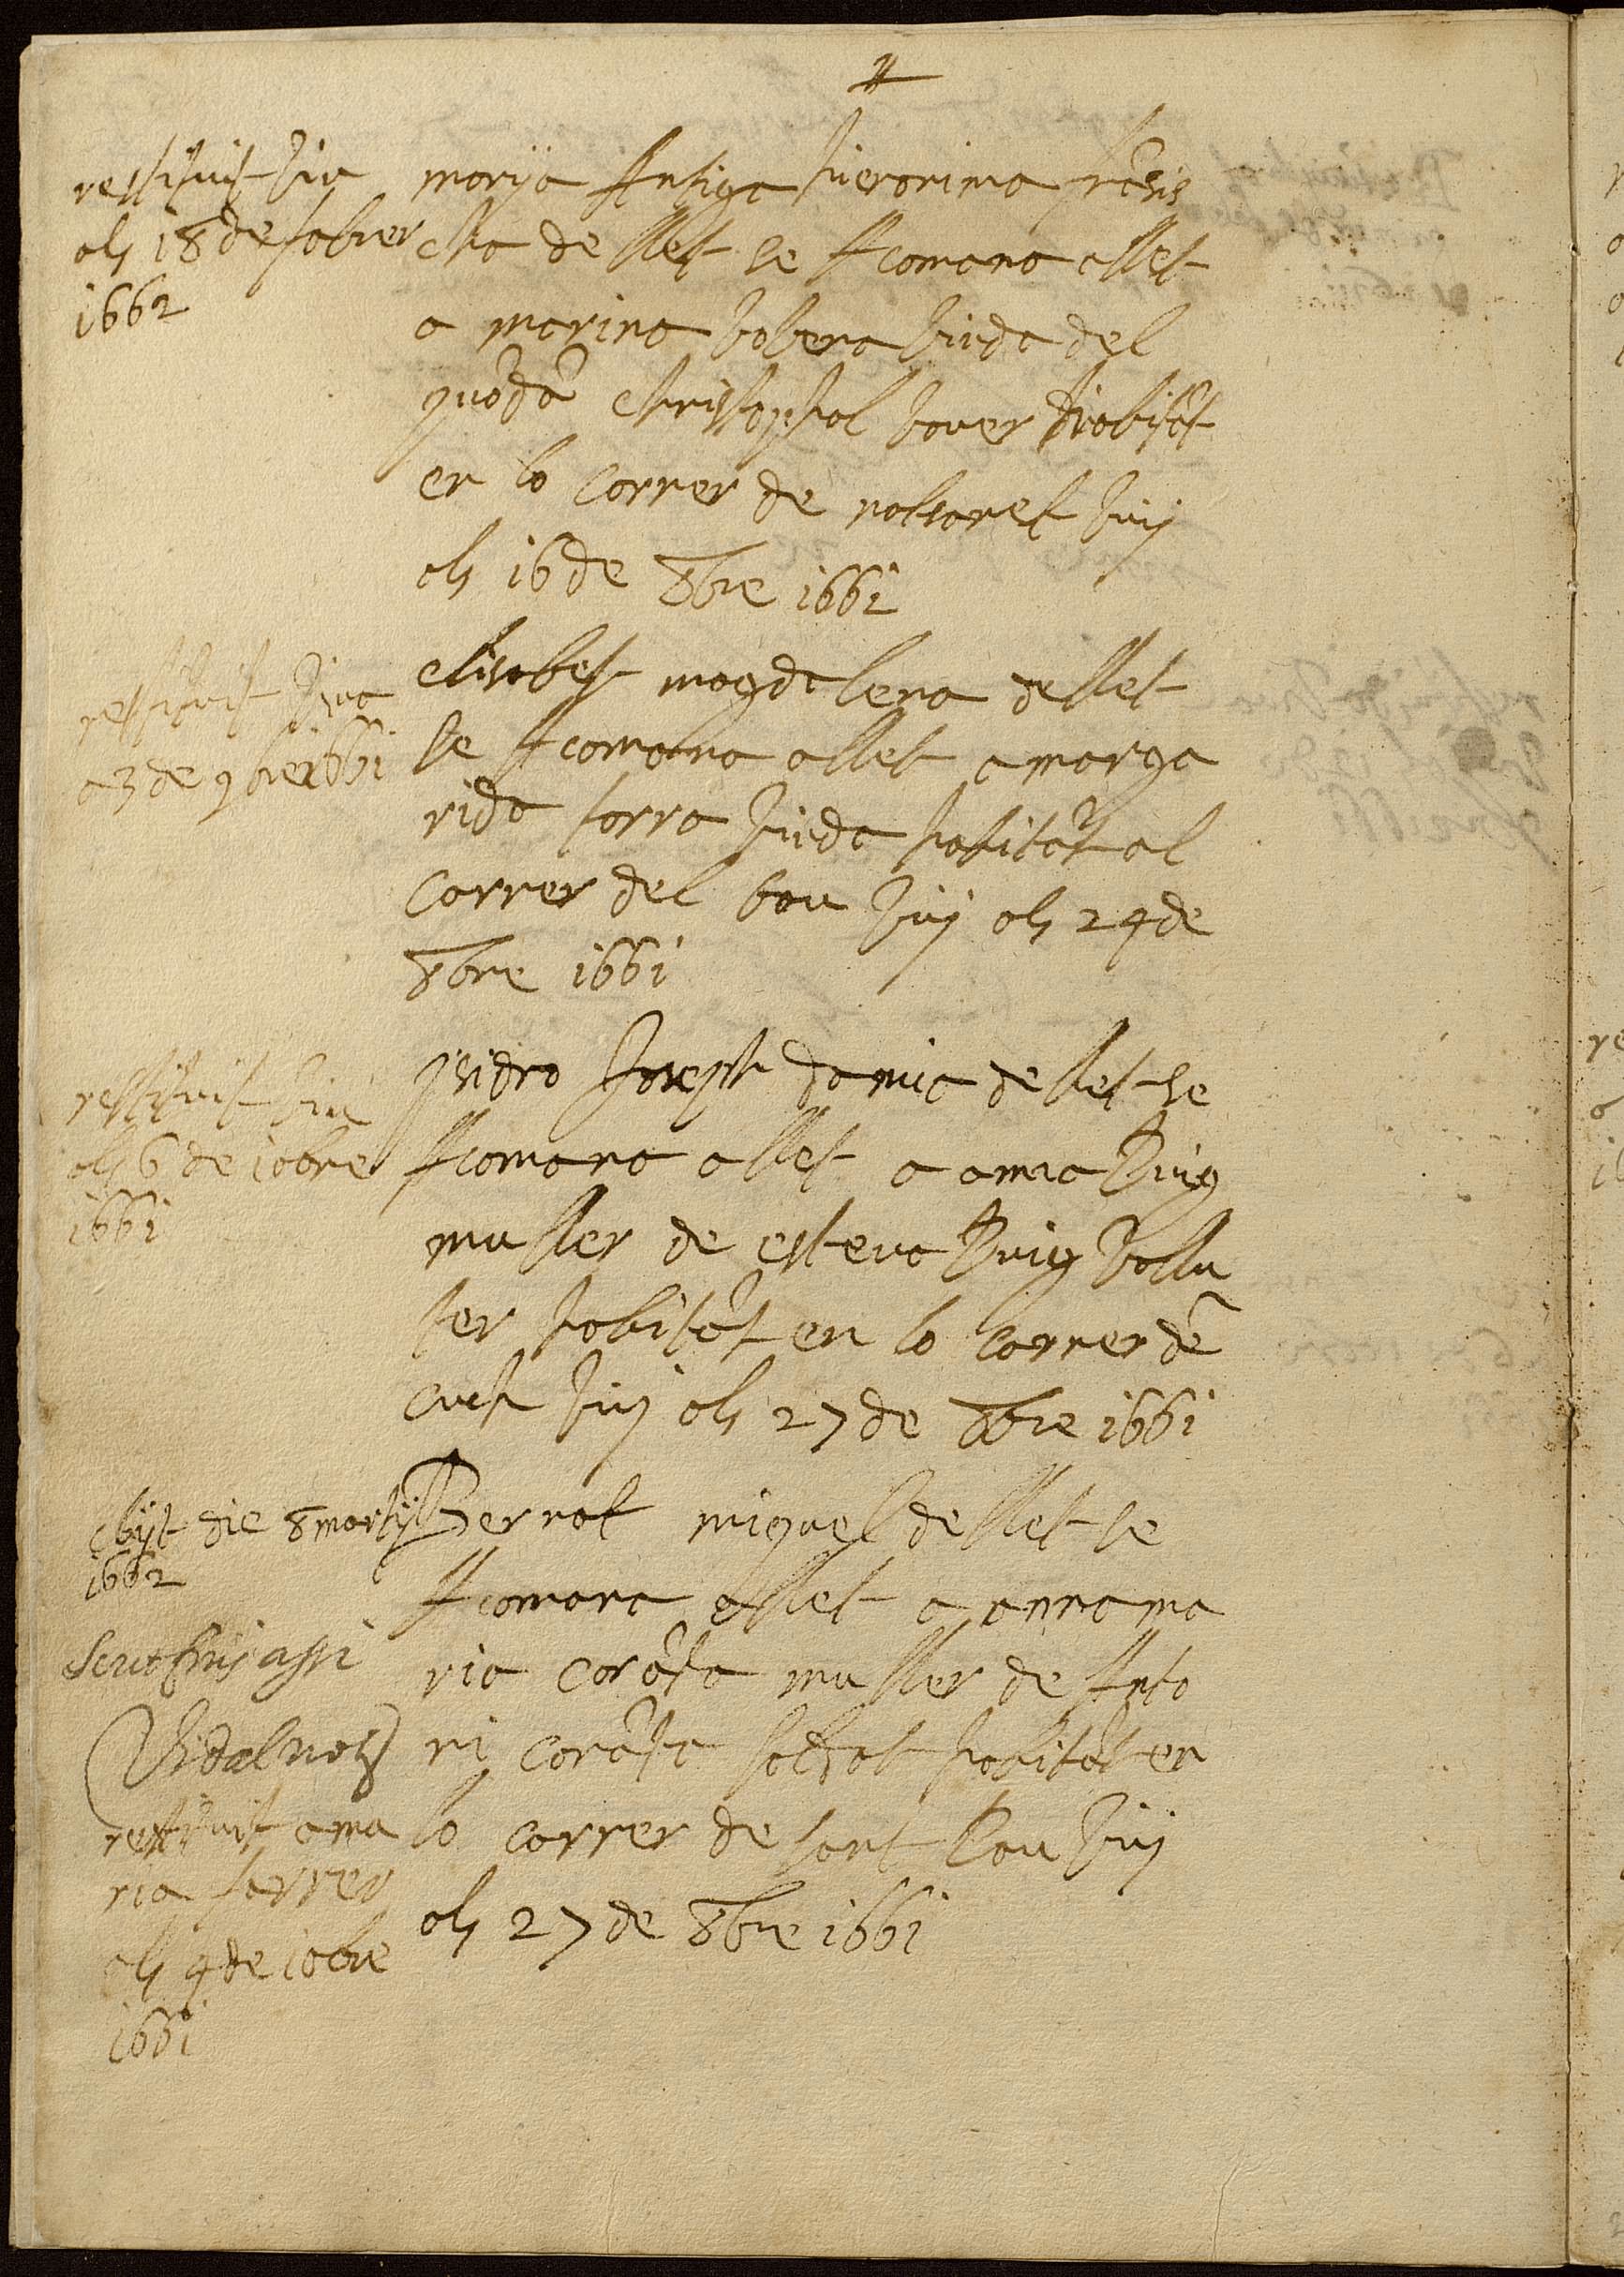 restituit viu
als 18 de fabrer
1662
marija Antiga hieronima frācis
cha de llet se Acomana a llet
a marina bovera viuda del
quōdā christophol bover habitāt
en lo carrer de natzaret vuy
als 16 de 8bre 1661
restituit viva
a 3 de 9bre 1661
elisabet magdalena de llet
se Acomana a llet a marga
rida serra viuda habitāt al
carrer del bou vuy als 24 de
8bre 1661
restituit viu
als 6 de 10bre
1661
ysidro Joseph damia de llet se
Acomana a llet a anna Puig
muller de esteva Puig vallu
ter habitāt en lo carrer dē
cuch vuy als 27 de 8bre 1661
obijt die 8 martij
1662
Vidal not
restituit a ma
ria ferrer
als 4 de 10bre
1661
Bernat miquel de llet se
Acomana a llet a anna ma
ria muller de Anto
ni soldat habitāt en
lo carrer de sant Pau vuy
als 27 de 8bre 1661